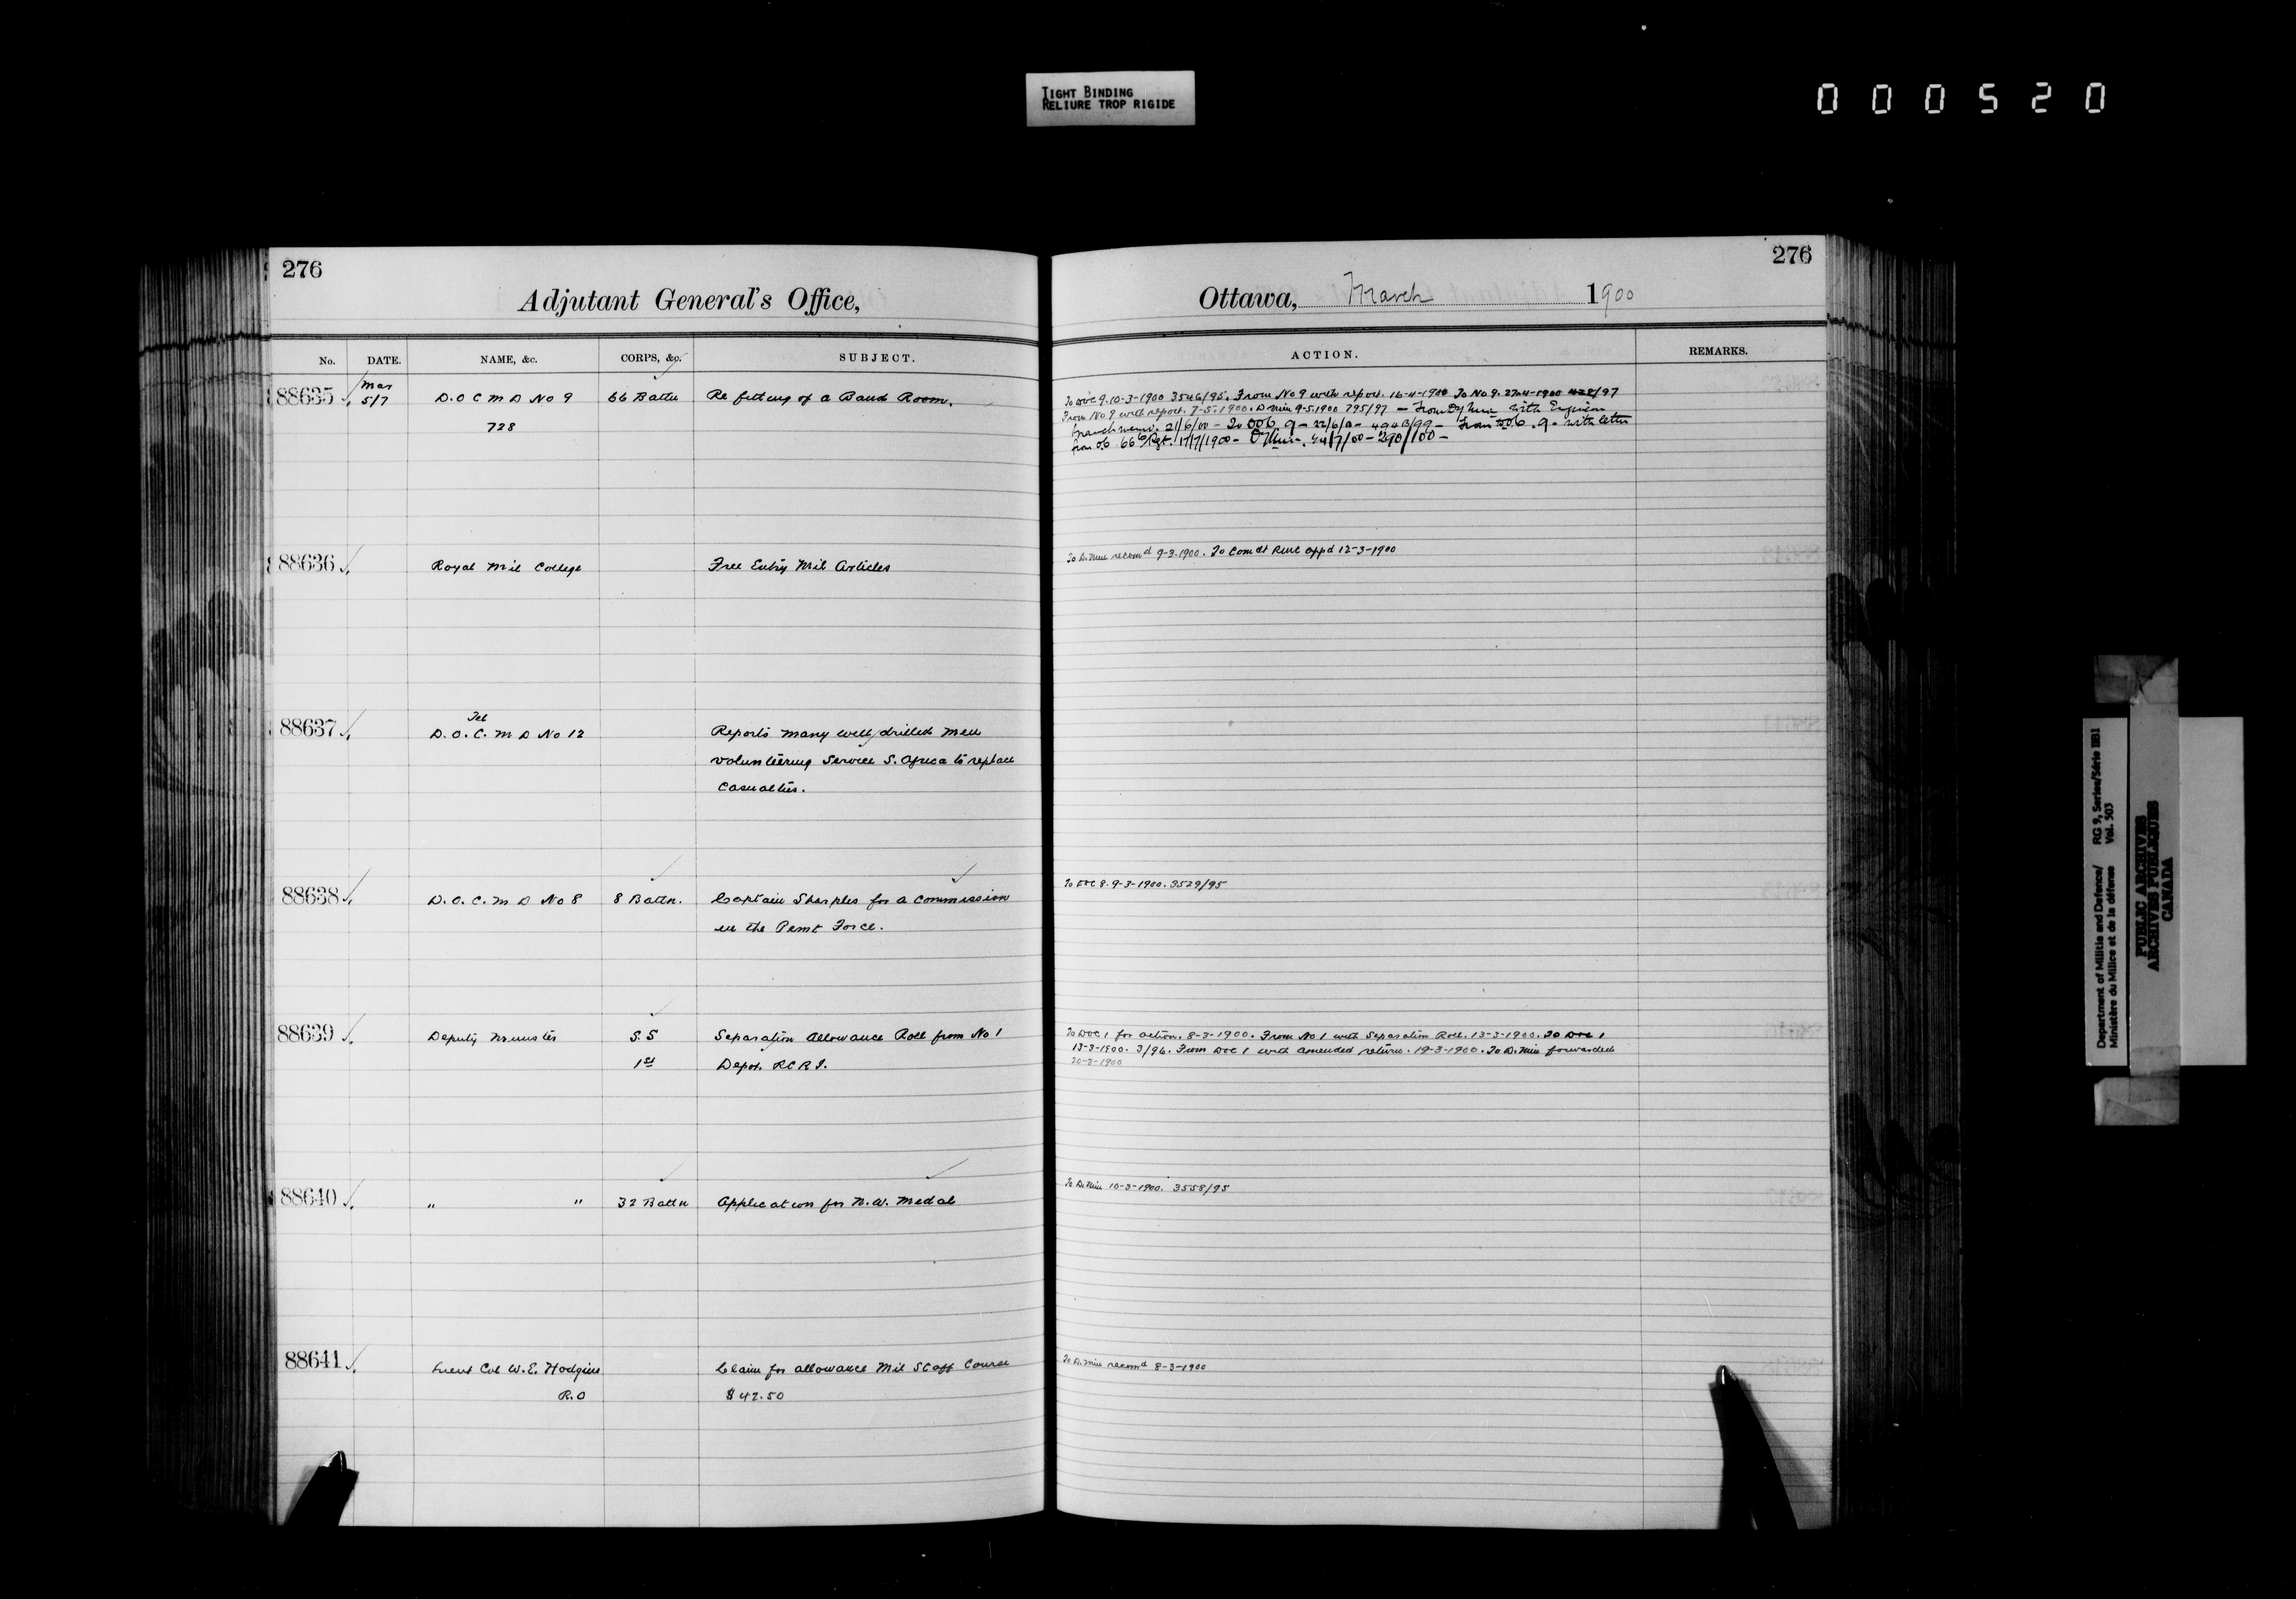 TIGHT BINDING
RELIURE TROP RIGIDE
000520
276
Adjutant General's Office,
No. DATE. NAME, &c. CORPS, &c. SUBJECT.
88635 Mar 5/7 D.O C M D No 9 66 Battn Re fitting of a Band Room.
728
88636 Royal Mil College Free Entry Mil Articles
Tel
88637 D.O.C. M D No 12 Reports many well drilled men
volunteering Service S. Africa to replace
Casualties.
88638 D.O.C. M D No 8 8 Battn. Captain Sharples for a Commission
in the Permt Force.
88639 Deputy Minister S.S Separation Allowance Roll from No 1
1st Depot. RCRI.
88640 " " 32 Battn Application for N.W. Medal
88641 Lieut Col W.E. Hodgins Claim for allowance Mil Staff Course
R.O $42.50
276
Ottawa, March 1900
ACTION. REMARKS.
To DOC 9. 10-3-1900 3546/95. From No 9 with report. 16-4-1900 To No 9. 27-4-1900 /97
From No 9 with report. 7-5-1900. D Min 9-5-1900 795/97 – From Dy Min with Engineer
branch memo. 21/6/00 – To DOC. 9 – 22/6/00 – – From DOC. 9. with letter
from OC 66th Rgt. 17/7/1900 – 24/7/00 – 290/100 –
To D. Min recomd 9-3-1900. To Comdt RMC appd 12-3-1900
To DOC 8. 9-3-1900. 3529/95
To DOC 1 for action. 8-3-1900. From No 1 with Separation Roll. 13-3-1900. To DOC 1
13-3-1900. 3/96. From DOC 1 with amended return. 19-3-1900. To D. Min forwarded
20-3-1900
To D. Min 10-3-1900. 3558/95
To D. Min recomd 8-3-1900
Department of Militia and Defence/ RG 9, Series/Série IIB1
Ministère du Milice et de la défense Vol. 503
PUBLIC ARCHIVES
ARCHIVES PUBLIQUES
CANADA